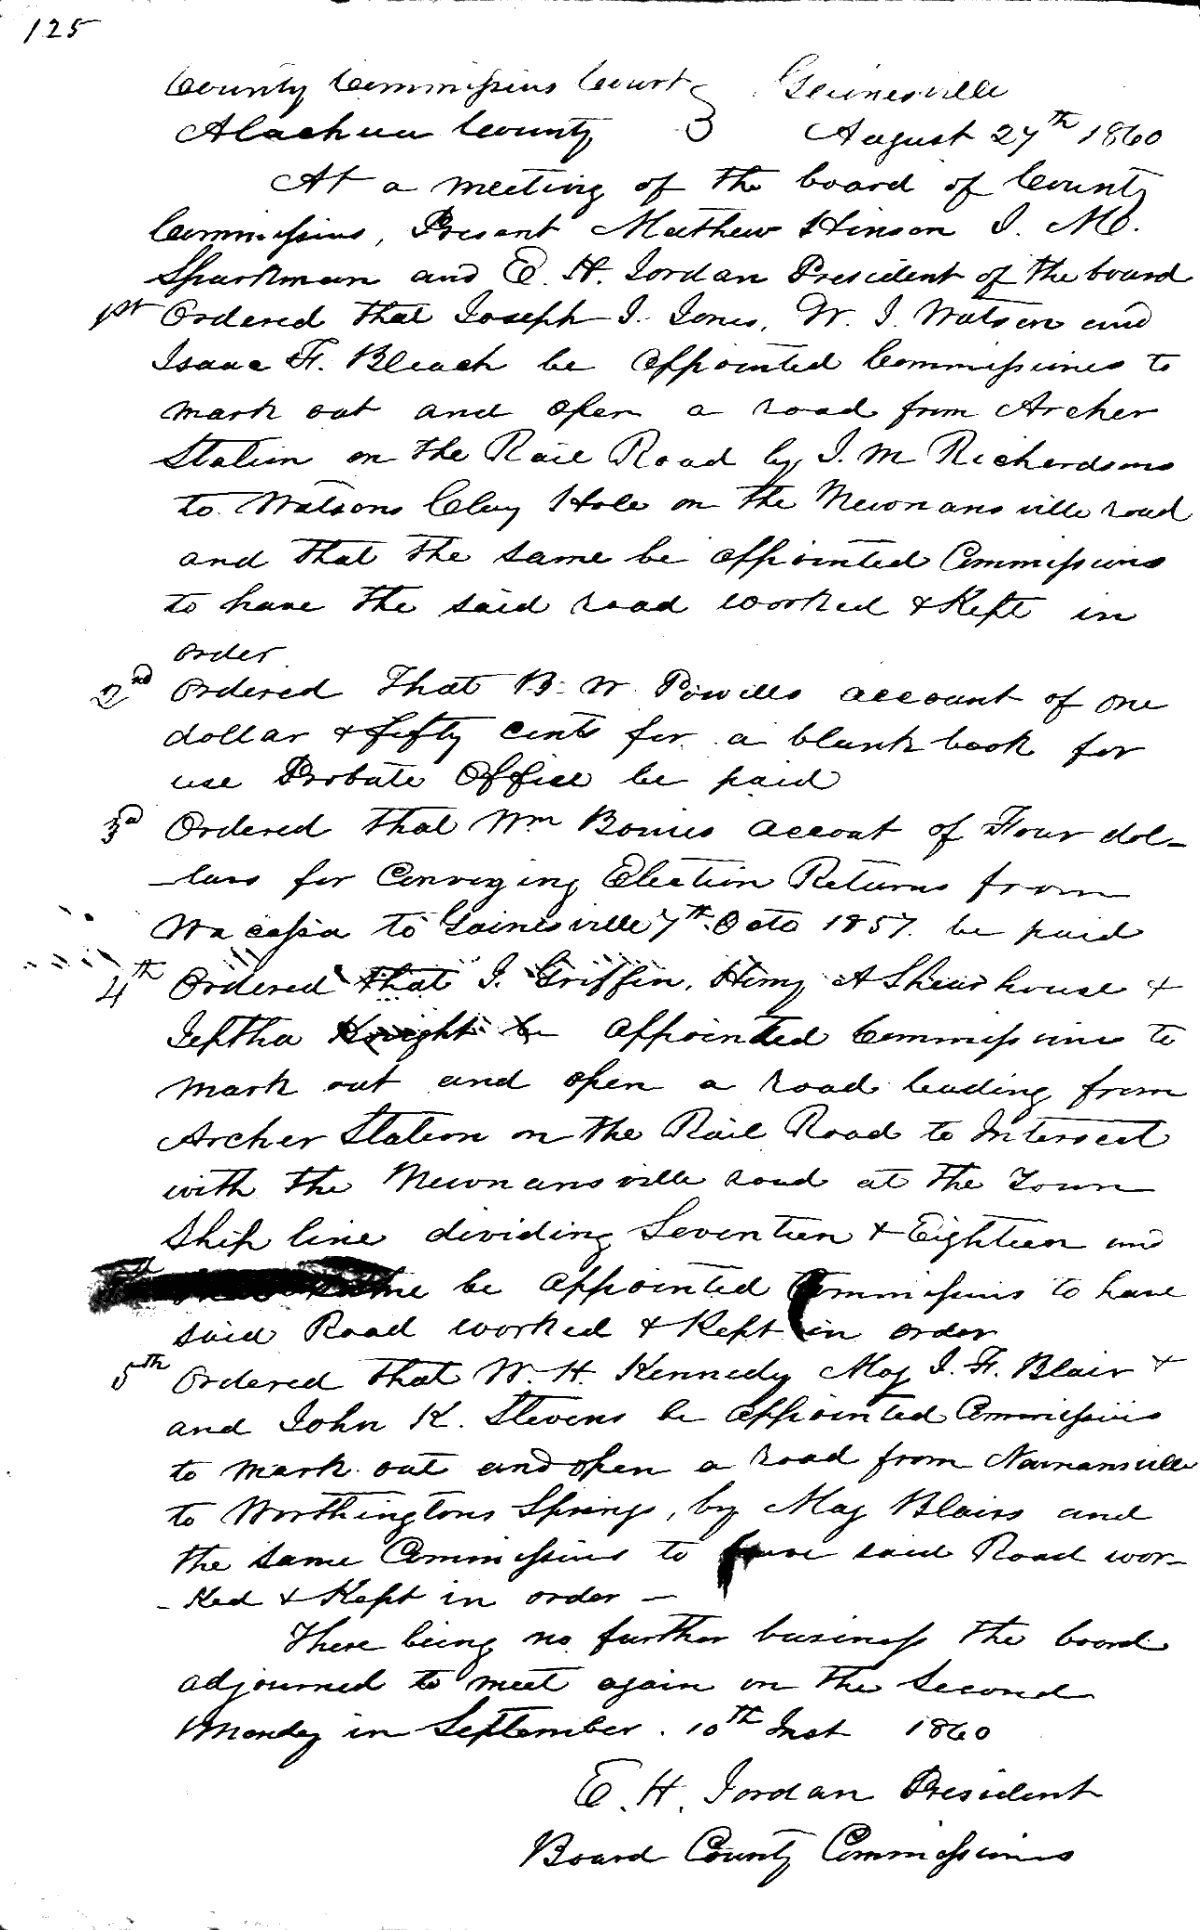 125
County Commissioners Court } Gainesville
Alachua County } August 27th 1860
At a meeting of the board of County
Commissioners, Present Mathew Hinson J. M.
Sparkman and E. H. Jordan President of the board
1st Ordered that Joseph J. Jones, W. J. Watson and
Isaac F. Bleach be appointed Commissioners to
mark out and open a road from Archer
Station on the Rail Road by J. M Richardsons
to Watsons Clay Hole on the Newnansville road
and that the same be appointed Commissioners
to have the said road worked & Kept in
order
2nd Ordered that B. W. Powells account of one
dollar & fifty cents for a blank book for
use Probate Office be paid
3d Ordered that Wm Bowies accout of Four dol-
-lars for Conveying Election Returns from
Wacassa to Gainesville 7th Octo 1857. be paid
4th Ordered that J. Griffin, Henry A Shearhouse &
Jeptha Knight be appointed Commissioners to
mark out and open a road leading from
Archer Station on the Rail Road to Intersect
with the Newnansville road at the Town
Ship line dividing Seventeen & Eighteen and
same be appointed Commissioners to have
said Road worked & Kept in order
5th Ordered that W. H. Kennedy Maj J. F. Blair &
and John K. Stevens be appointed Commissioners
to mark out and open a road from Newnansville
to Worthingtons Springs, by Maj Blairs and
the same Commissioners to have said Road wor-
-ked & Kept in order -
There being no further business the board
adjourned to meet again on the Second
Monday in September. 10th Inst 1860
E. H. Jordan President
Board County Commissioners